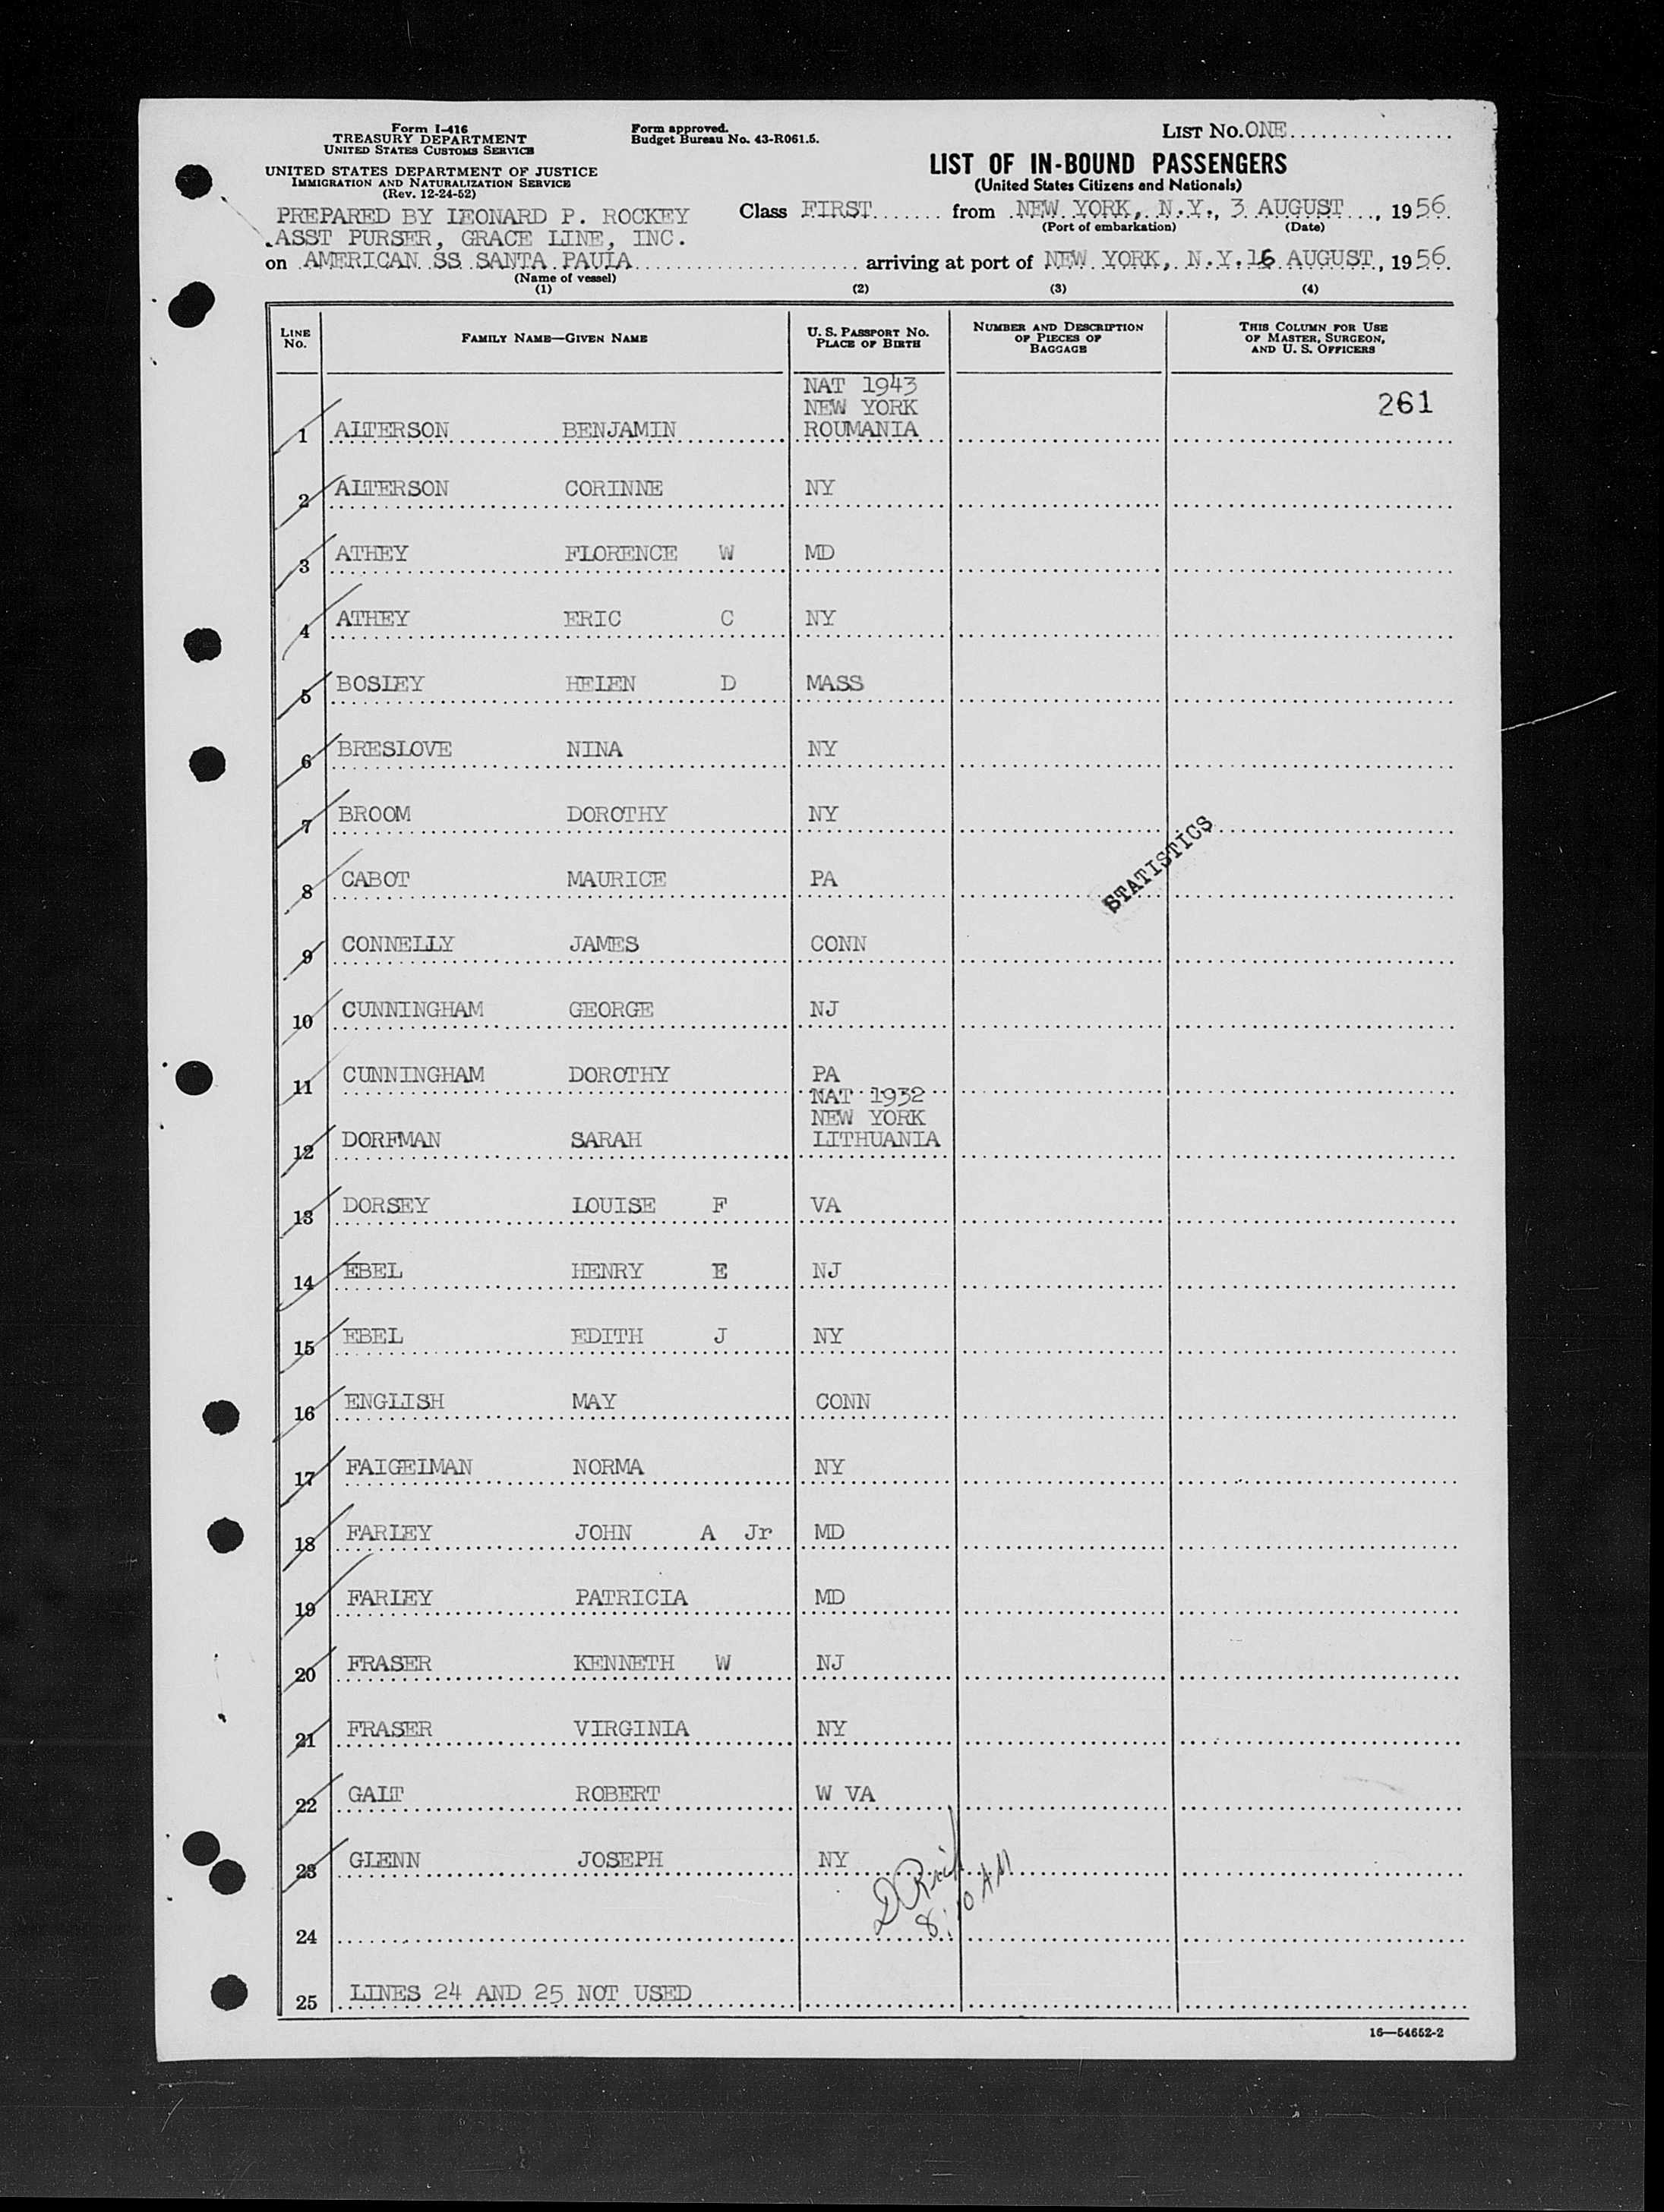 Form I-416
TREASURY DEPARTMENT
UNITED STATES CUSTOMS SERVICE
UNITED STATES DEPARTMENT OF JUSTICE
IMMIGRATION AND NATURALIZATION SERVICE
(Rev. 12-24-52)
Form approved.
Budget Bureau No. 43-R061.5.
LIST No. ONE
LIST OF IN-BOUND PASSENGERS
(United States Citizens and Nationals)
PREPARED BY LEONARD P. ROCKEY
ASST PURSER, GRACE LINE, INC.
Class FIRST from NEW YORK, N.Y., 3 AUGUST, 1956
(Port of embarkation) (Date)
on AMERICAN SS SANTA PAULA arriving at port of NEW YORK, N.Y. 16 AUGUST, 1956
(Name of vessel)
(1) (2) (3) (4)
LINE No. FAMILY NAME—GIVEN NAME U. S. PASSPORT No. PLACE OF BIRTH NUMBER AND DESCRIPTION OF PIECES OF BAGGAGE THIS COLUMN FOR USE OF MASTER, SURGEON, AND U. S. OFFICERS
NAT 1943
NEW YORK 261
1 ALTERSON BENJAMIN ROUMANIA
2 ALTERSON CORINNE NY
3 ATHEY FLORENCE W MD
4 ATHEY ERIC C NY
5 BOSLEY HELEN D MASS
6 BRESLOVE NINA NY
7 BROOM DOROTHY NY
STATISTICS
8 CABOT MAURICE PA
9 CONNELLY JAMES CONN
10 CUNNINGHAM GEORGE NJ
11 CUNNINGHAM DOROTHY PA
NAT 1932
NEW YORK
12 DORFMAN SARAH LITHUANIA
13 DORSEY LOUISE F VA
14 EBEL HENRY E NJ
15 EBEL EDITH J NY
16 ENGLISH MAY CONN
17 FAIGELMAN NORMA NY
18 FARLEY JOHN A Jr MD
19 FARLEY PATRICIA MD
20 FRASER KENNETH W NJ
21 FRASER VIRGINIA NY
22 GALT ROBERT W VA
23 GLENN JOSEPH NY
8:10 AM
24
25 LINES 24 AND 25 NOT USED
16—54652-2